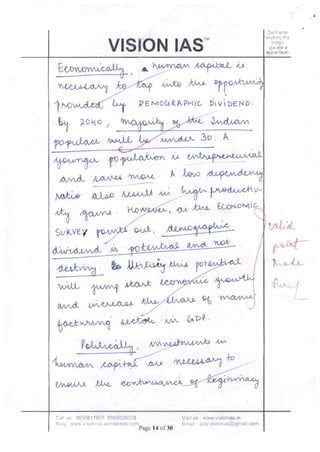 Don't write
anything this
margin
VISION IAS™
Economically, human capital is
necessary to tap into the opportunity
provided by DEMOGRAPHIC DIVIDEND.
By 2040, majority of the Indian
populace will be under 30. A
younger population is entrepreneurial
and saves more. A low dependency
ratio also result in high productiv-
ity gains. However, as the ECONOMIC
SURVEY points out, demographic
dividend is potential and not
destiny. Utilising this potential
will jump start economic growth
and increase the share of manu
facturing sector in GDP.
valid
point
made
here
Politically, investments in
human capital are necessary to
ensure the continuance of legitimacy
Call us : 9650617807, 9968029039
Visit us : www.visionias.in
Blog : www.visionias.wordpress.com
Page 14 of 30
Email : ajay.visionias@gmail.com